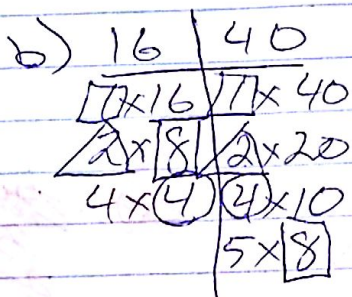 b) 16 40
1×16 1×40
2×8 2×20
4×4 4×10
5×8